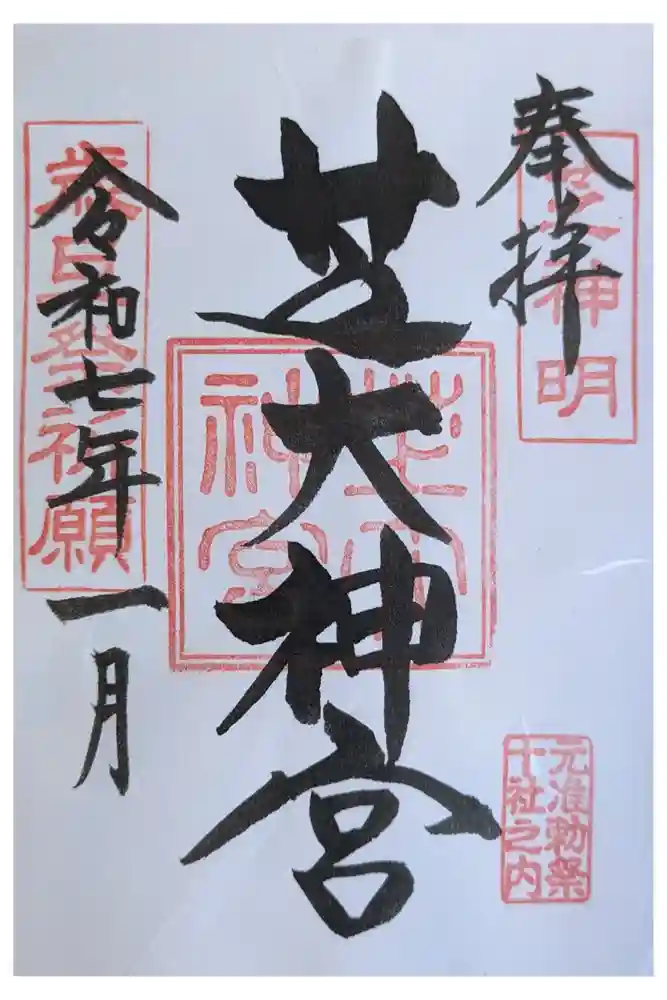 奉拝
神明
元准勅祭
十社之内
芝大神宮
芝大
神宮
令和七年一月
歳旦祭祈願